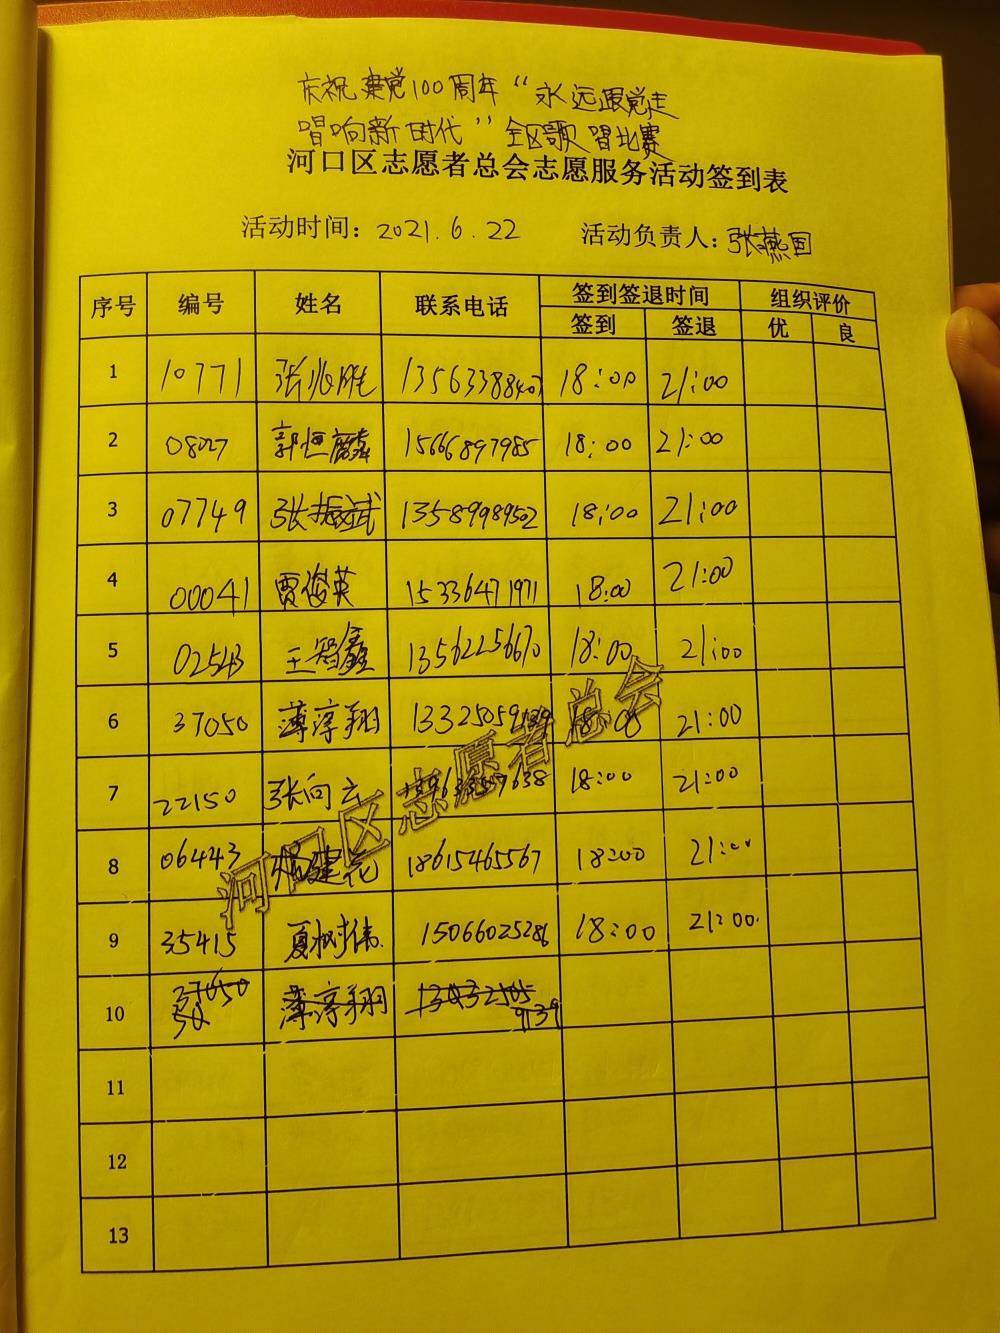 庆祝建党100周年“永远跟党走
唱响新时代”全区歌唱比赛
河口区志愿者总会志愿服务活动签到表
活动时间：2021.6.22 活动负责人：张燕国
序号 编号 姓名 联系电话 签到签退时间 组织评价
签到 签退 优 良
1 10771 张兆胜 13563388407 18:00 21:00
2 08027 郭恒麟 15666897985 18:00 21:00
3 07749 张振斌 13589989502 18:00 21:00
4 00041 贾俊英 15336471971 18:00 21:00
5 02543 王智鑫 13562256670 18:00 21:00
6 37050 薄淳翔 18:00 21:00
7 22150 张向云 18:00 21:00
8 06443 杨建花 18615465567 18:00 21:00
9 35415 夏树伟 15066025286 18:00 21:00
10 薄淳翔
11
12
13
河口区志愿者总会